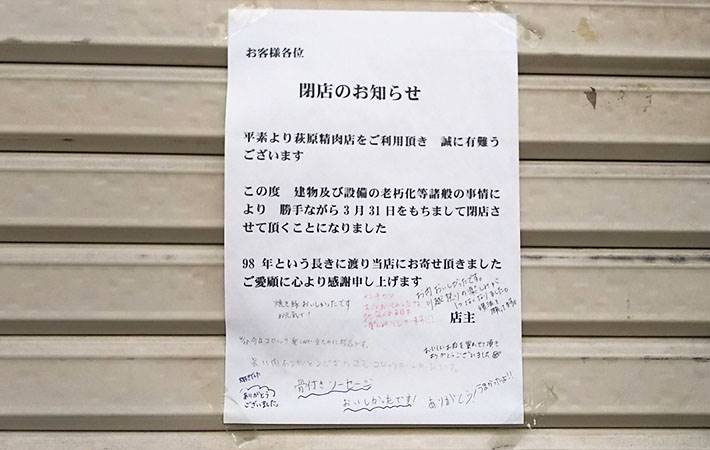 お客様各位
閉店のお知らせ
平素より萩原精肉店をご利用頂き 誠に有難う
ございます
この度 建物及び設備の老朽化等諸般の事情に
より 勝手ながら3月31日をもちまして閉店さ
せて頂くことになりました
98年という長きに渡り当店にお寄せ頂きました
ご愛顧に心より感謝申し上げます
店主
焼き豚おいしかったです
お肉おいしかったです。
ありがとうございました
骨付きソーセージ
おいしかったです!
ありがとう
ございました。
ありがとう